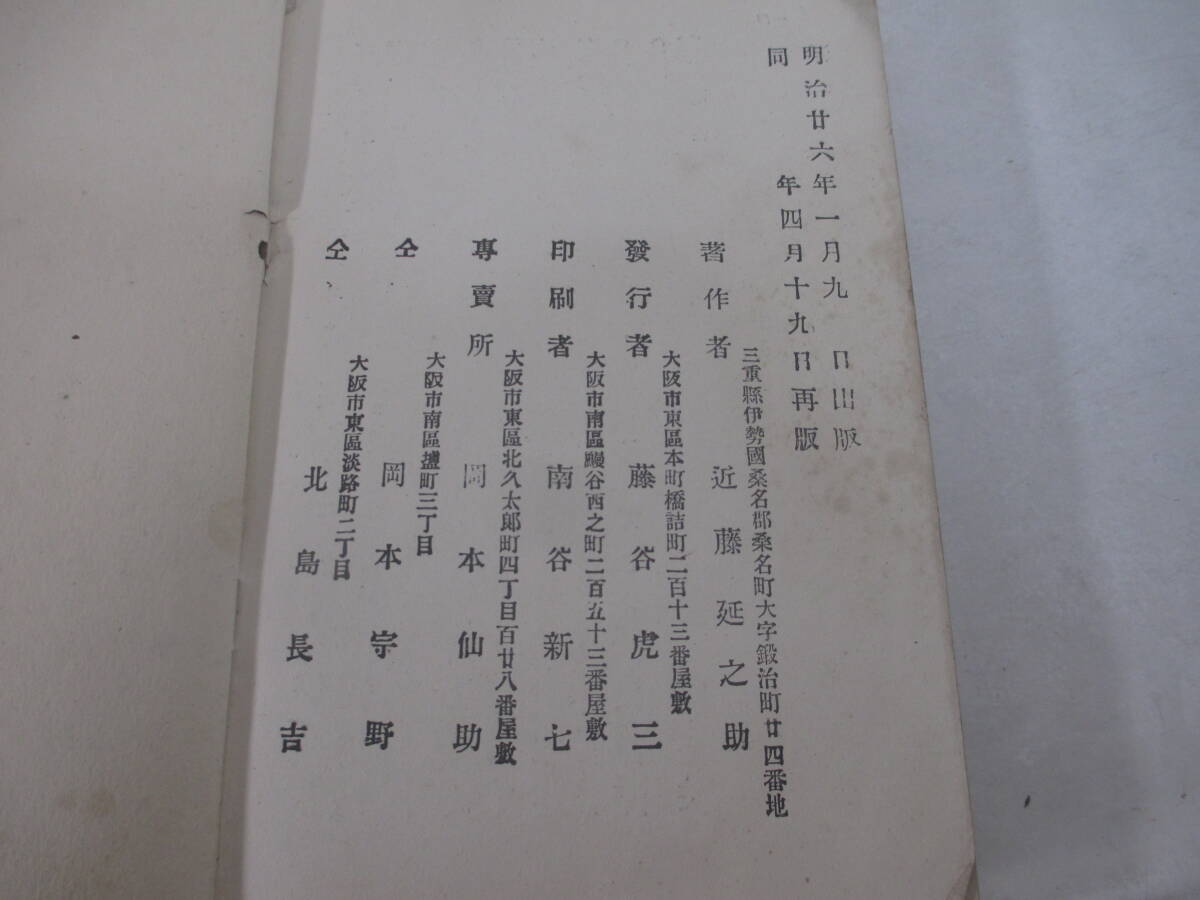 明治廿六年一月九日出版
同年四月十九日再版
三重縣伊勢國桑名郡桑名町大字鍛治町廿四番地
著作者 近藤延之助
大阪市東區本町橋詰町二百十三番屋敷
發行者 藤谷虎三
大阪市南區鰻谷西之町二百五十三番屋敷
印刷者 南谷新七
大阪市東區北久太郎町四丁目百廿八番屋敷
專賣所 岡本仙助
大阪市南區鹽町三丁目
仝 岡本宗野
大阪市東區淡路町二丁目
仝 北島長吉